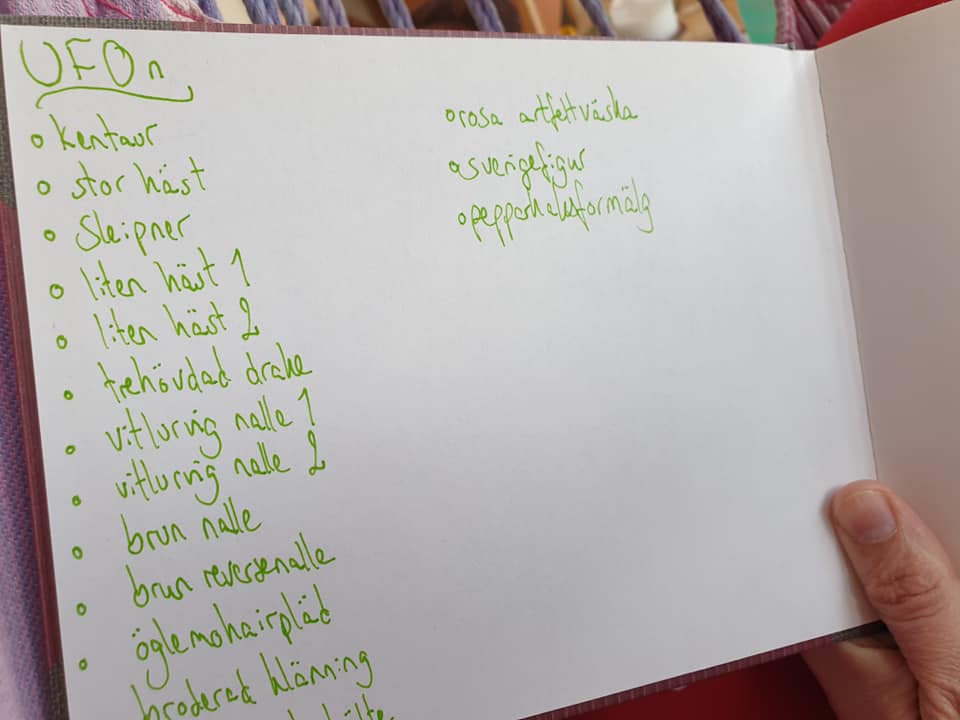 UFOn
kentaur
stor häst
Sleipner
liten häst 1
liten häst 2
trehövdad drake
vitlurvig nalle 1
vitlurvig nalle 2
brun nalle
brun reversenalle
öglemohairpläd
broderad klänning
rosa artfettväska
sverigefigur